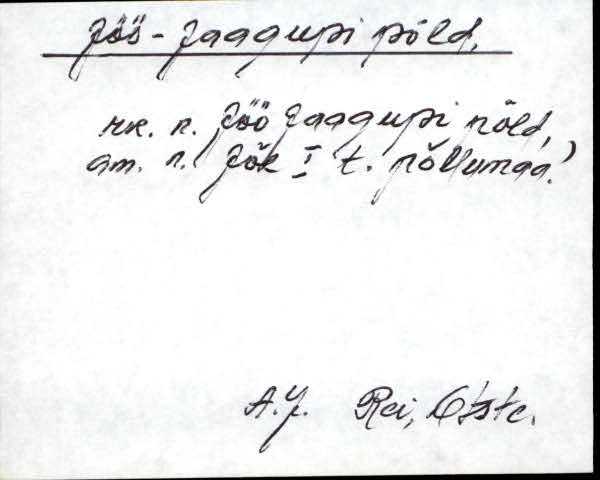 Jöö-Jaagupi põld,
rk. n. Jöö Jaagupi põld,
am. n. Jõe I t. põllumaa.)
A.J. Rei, Otste.